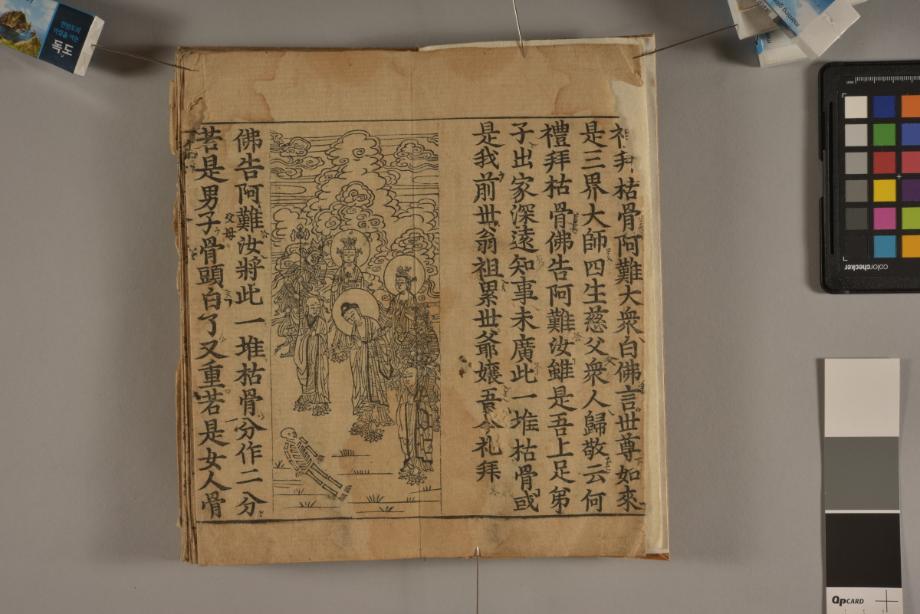 礼拜枯骨阿難大衆白佛言世尊如來
是三界大師四生慈父衆人歸敬云何
禮拜枯骨佛告阿難汝雖是吾上足弟
子出家深遠知事未廣此一堆枯骨或
是我前世翁祖累世爺孃吾今礼拜
佛告阿難汝將此一堆枯骨分作二分
父母
若是男子骨頭白了又重若是女人骨
독도
QPCARD
colorchecker